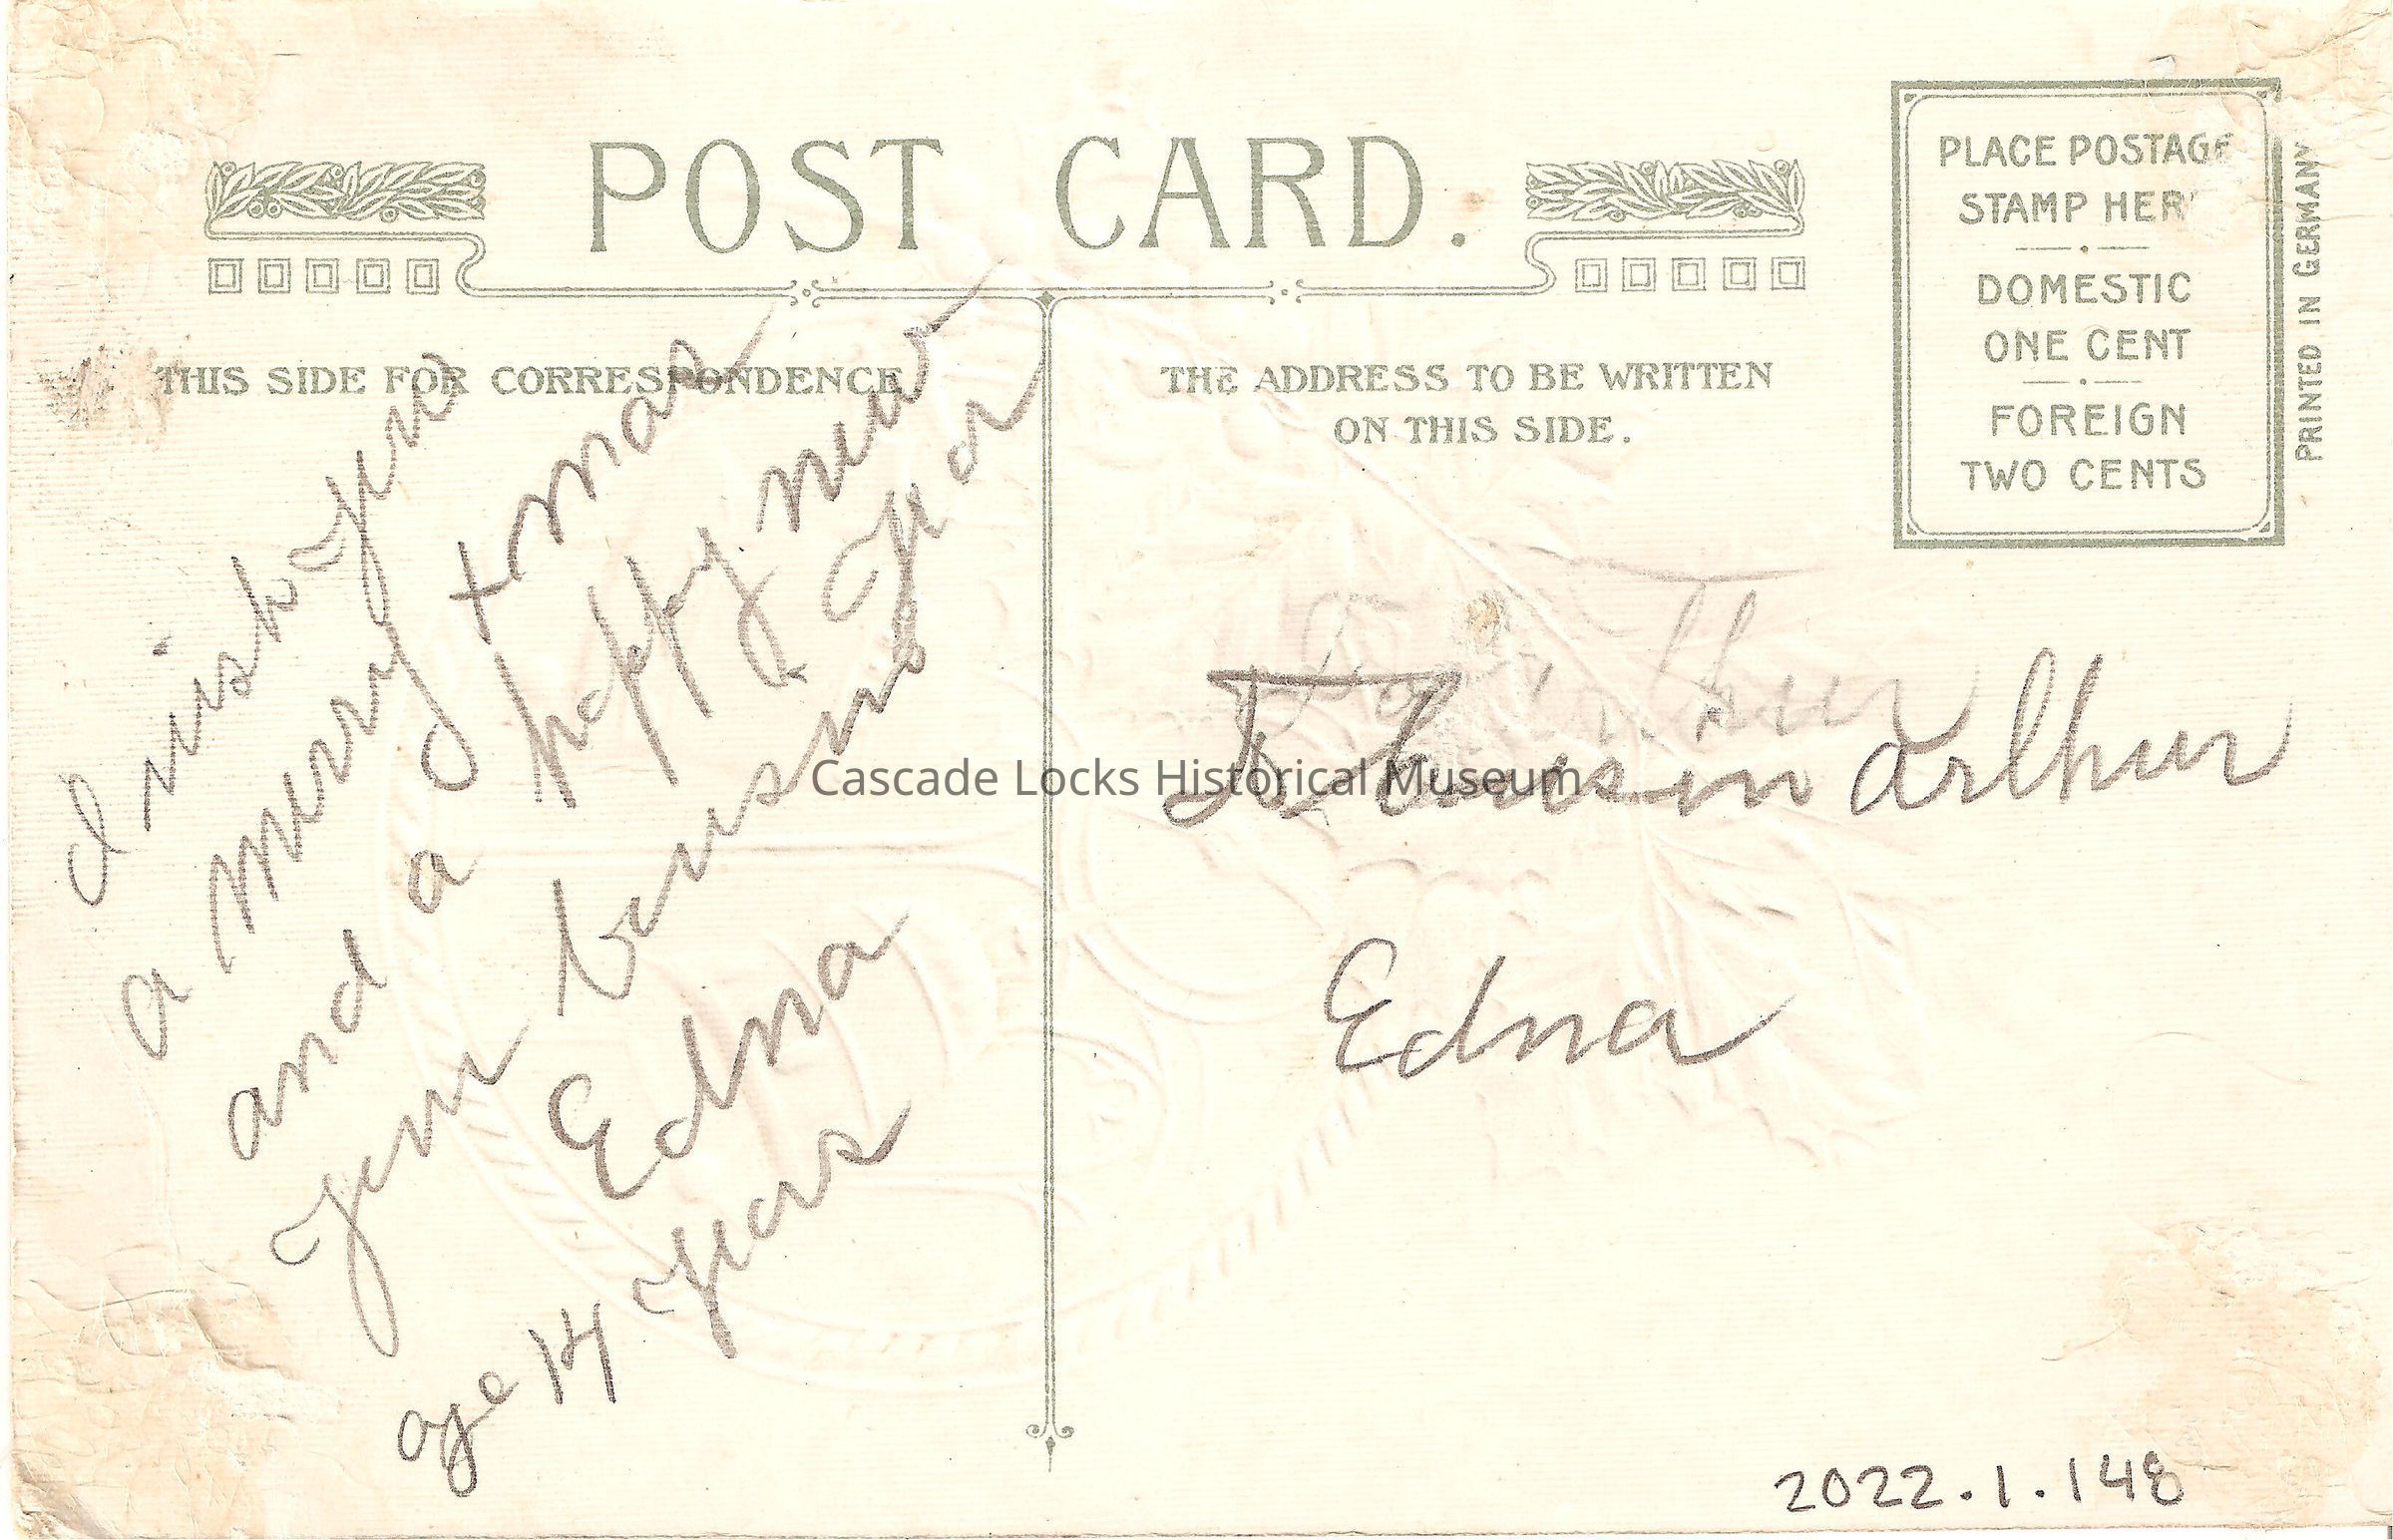 POST CARD.
PLACE POSTAGE
STAMP HERE
DOMESTIC
ONE CENT
FOREIGN
TWO CENTS
PRINTED IN GERMANY
THIS SIDE FOR CORRESPONDENCE
I wish you
a merry +mas
and a happy new
year
your
Edna
age 14 years
THE ADDRESS TO BE WRITTEN
ON THIS SIDE.
To arthur
Edna
Cascade Locks Historical Museum
2022.1.148